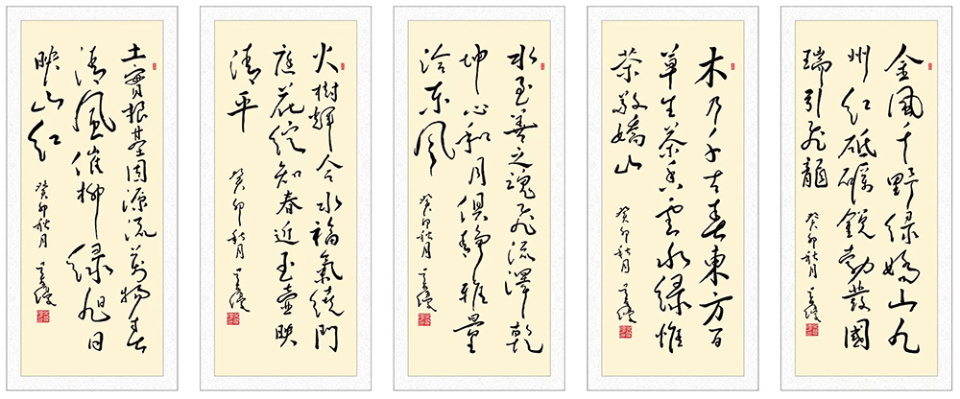 金風千野绿嬌山九
州红砥礪銳勁發國
瑞引飛龍
癸卯秋月
木乃千古春東方百
草生茶香雲水绿惟
茶敬嬌山
癸卯秋月
水至善之魂飛流澤乾
坤心和月俱静雅量
洽東風
癸卯秋月
火樹輝合水福氣繞門
庭花綻知春近玉壺映
清平
癸卯秋月
土實根基固源流萬物春
清風催柳绿旭日
映山红
癸卯秋月